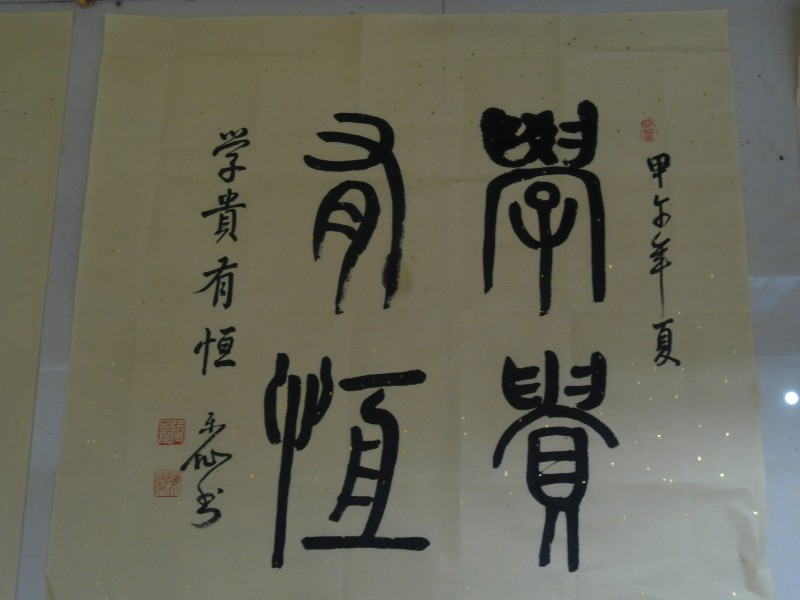 甲午年夏
學貴
有恒
学貴有恒
乐仙书